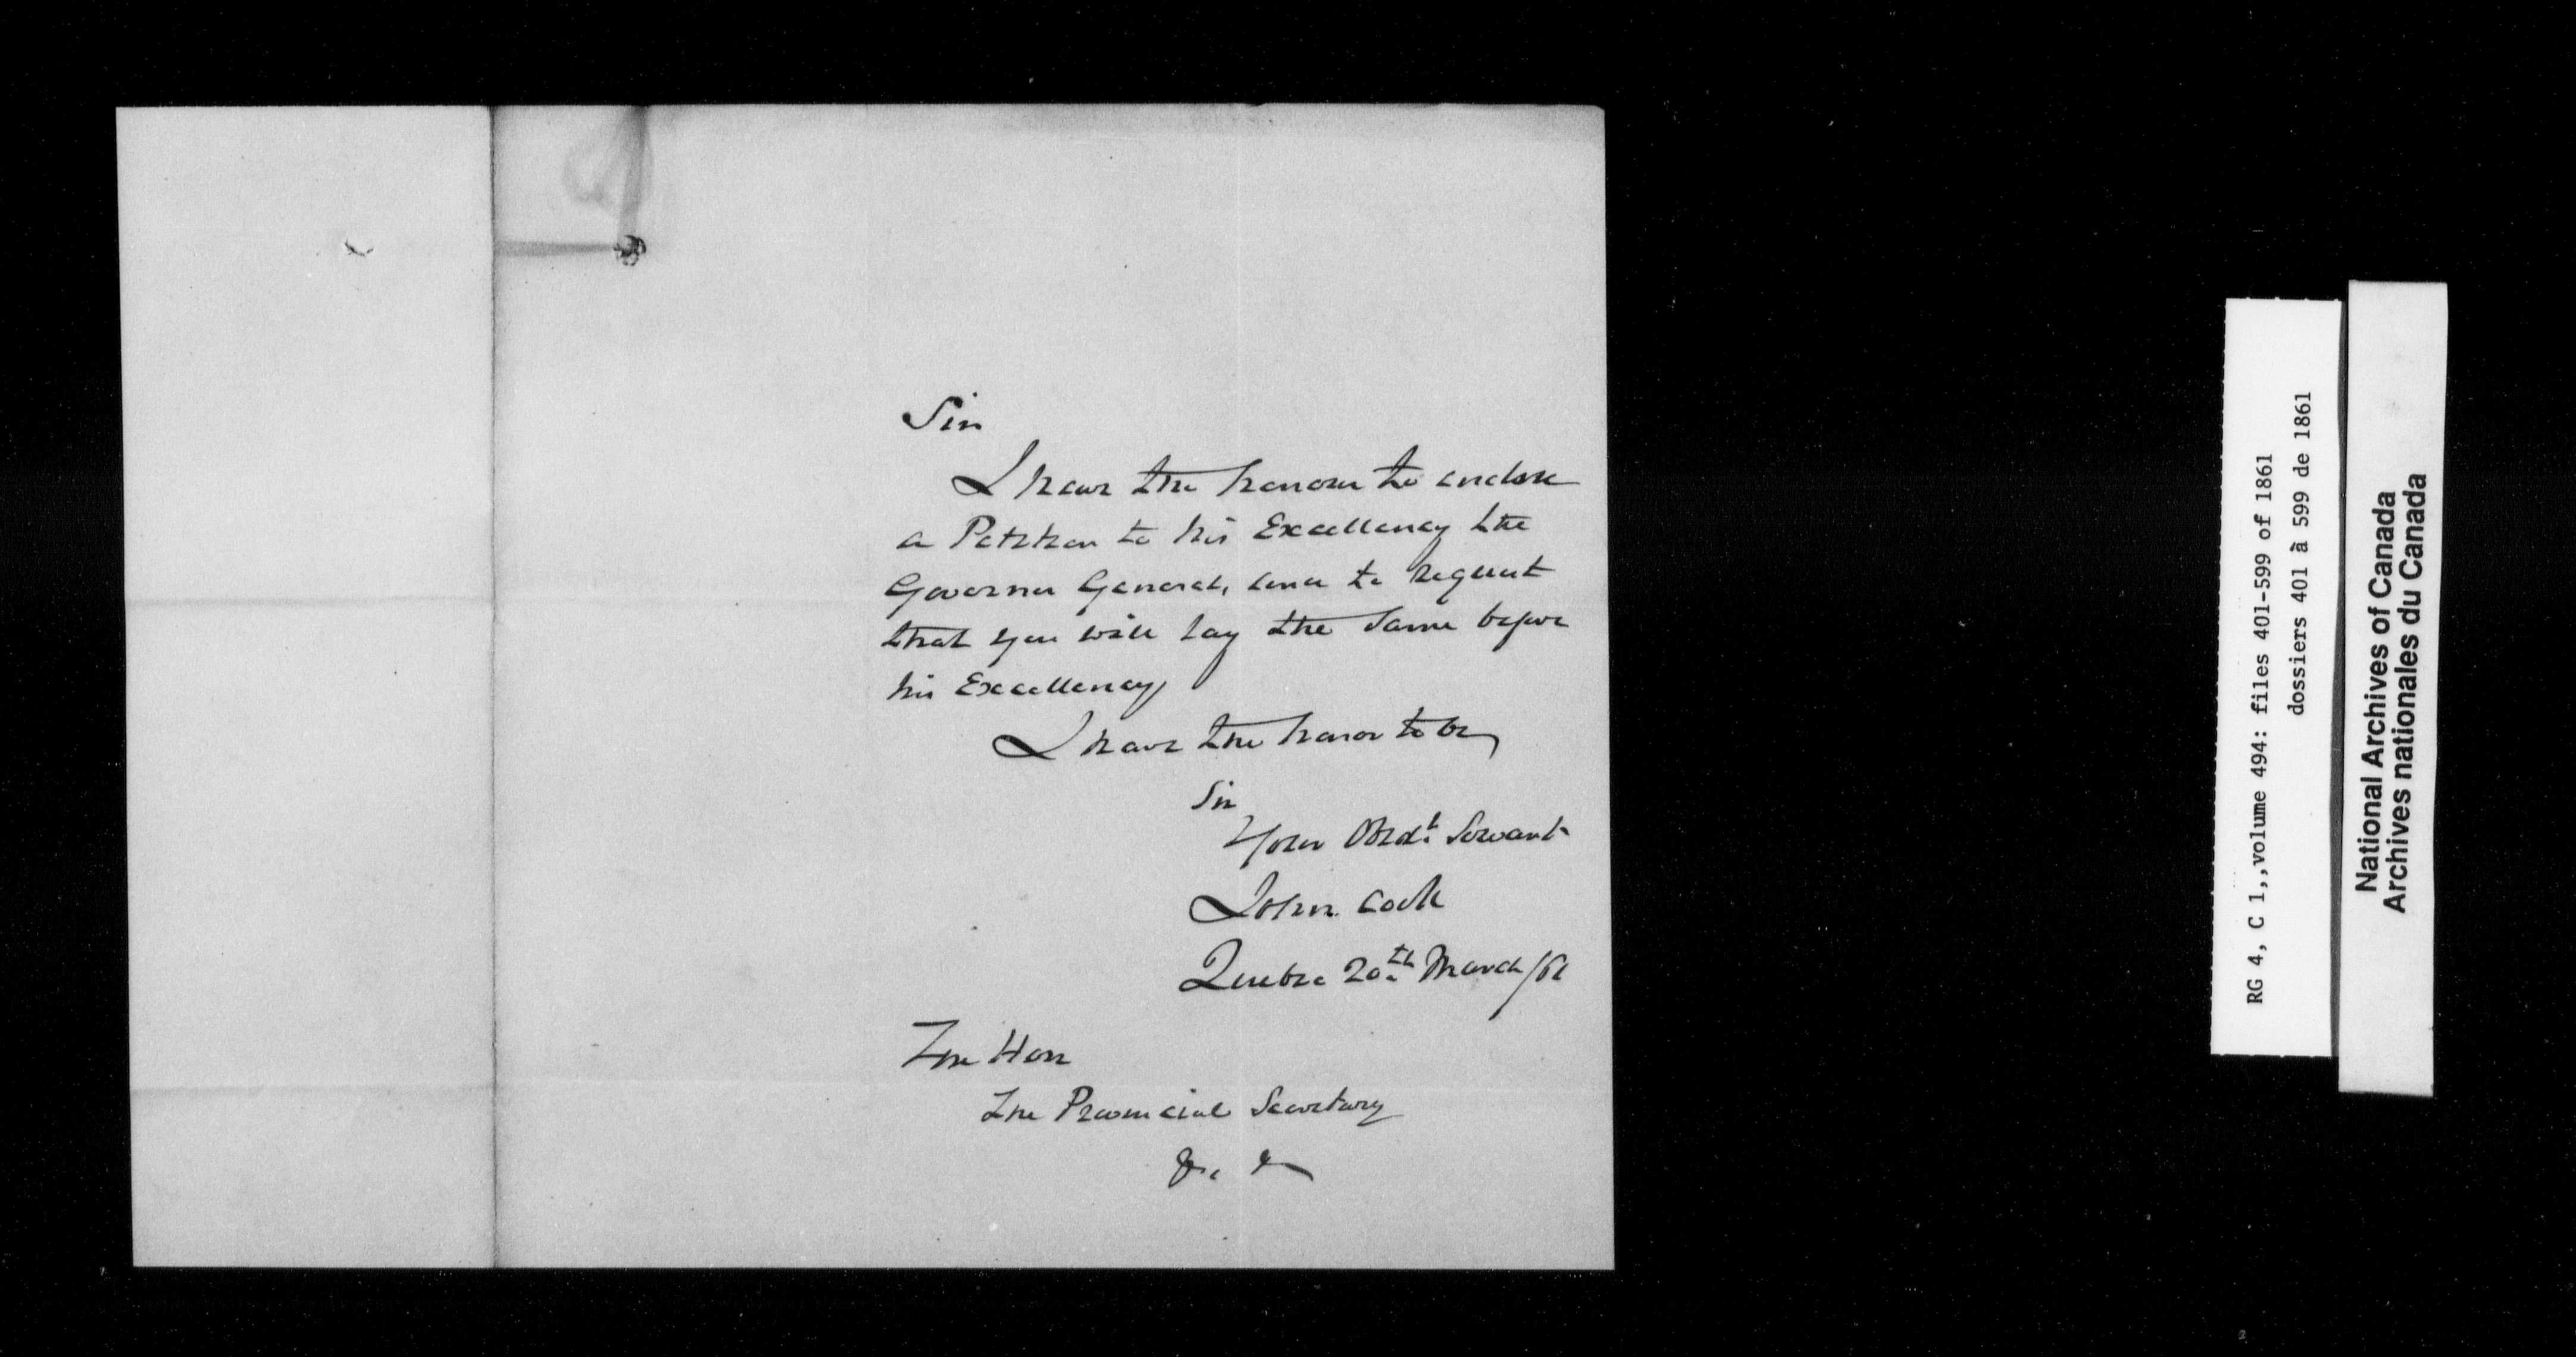 Sir
I have the honour to enclose
a Petition to his Excellency the
Governor General, and to request
that you will lay the same before
his Excellency
I have the honor to be
Sir
Your Obdt. Servant
John Cook
Quebec 20th March /61
The Hon
The Provincial Secretary
&c &
RG 4, C 1,,volume 494: files 401-599 of 1861
dossiers 401 à 599 de 1861
National Archives of Canada
Archives nationales du Canada